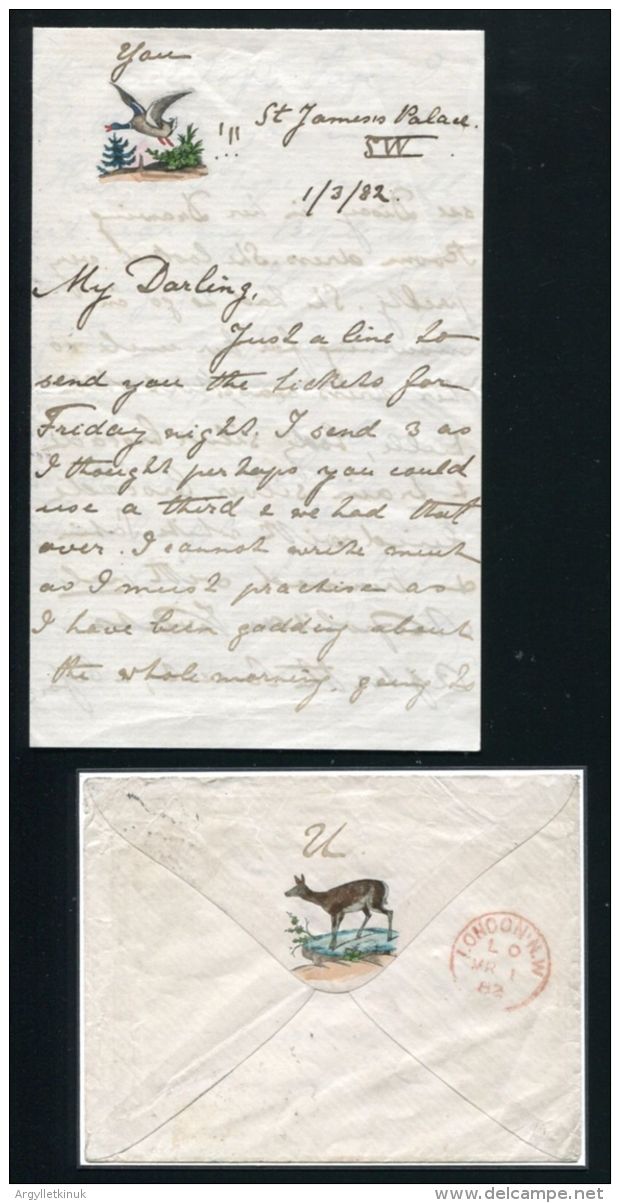 You
"!!...
St James's Palace.
SW
1/3/82.
My Darling,
Just a line to
send you the tickets for
Friday night. I send 3 as
I thought perhaps you could
use a third & we had that
over. I cannot write much
as I must practise as
I have been gadding about
the whole morning, going to
U
LONDON.N.W
L O
MR 1
82
Argylletkinuk
delcampe.net